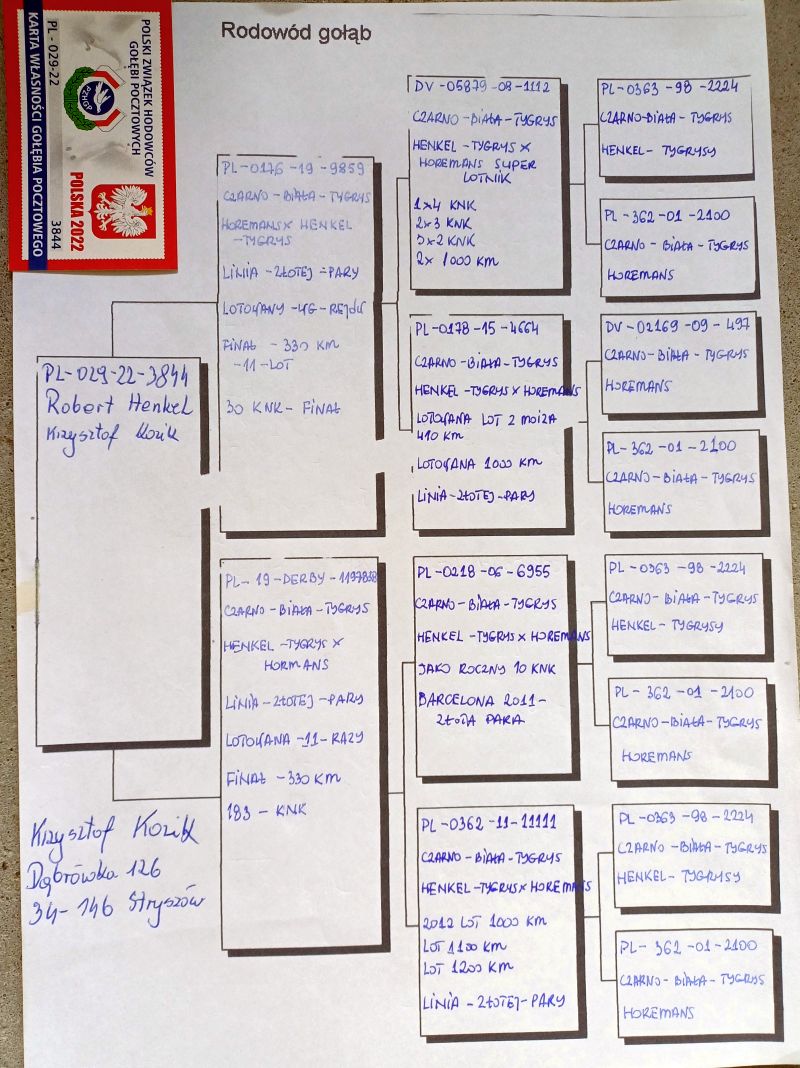 Rodowód gołąb
POLSKI ZWIĄZEK HODOWCÓW
GOŁĘBI POCZTOWYCH
PZHGP
POLSKA 2022
PL - 029-22
3844
KARTA WŁASNOŚCI GOŁĘBIA POCZTOWEGO
PL-029-22-3844
Robert Henkel
Krzysztof Kozik
PL-0176-19-9859
CZARNO-BIAŁA-TYGRYS
HOREMANS X HENKEL
-TYGRYS
LINIA-ZŁOTEJ-PARY
LOTOWANY-WG-REJOW
FINAŁ - 330 KM
-11-LOT
30 KNK-FINAŁ
PL-19-DERBY-1197838
CZARNO-BIAŁA-TYGRYS
HENKEL-TYGRYS X
HORMANS
LINIA-ZŁOTEJ-PARY
LOTOWANA-11-RAZY
FINAŁ-330 KM
183 - KNK
DV-05879-08-1112
CZARNO-BIAŁA-TYGRYS
HENKEL-TYGRYS X
HOREMANS SUPER
LOTNIK
1x4 KNK
2x3 KNK
5x2 KNK
2x 1000 KM
PL-0178-15-4664
CZARNO-BIAŁA-TYGRYS
HENKEL-TYGRYS X HOREMANS
LOTOWANA LOT 2 MOIZA
410 KM
LOTOWANA 1000 KM
LINIA-ZŁOTEJ-PARY
PL-0218-06-6955
CZARNO-BIAŁA-TYGRYS
HENKEL-TYGRYS X HOREMANS
JAKO ROCZNY 10 KNK
BARCELONA 2011-
ZŁOTA PARA
PL-0362-11-11111
CZARNO-BIAŁA-TYGRYS
HENKEL-TYGRYS X HOREMANS
2012 LOT 1000 KM
LOT 1100 KM
LOT 1200 KM
LINIA-ZŁOTEJ-PARY
PL-0363-98-2224
CZARNO-BIAŁA-TYGRYS
HENKEL-TYGRYSY
PL-362-01-2100
CZARNO-BIAŁA-TYGRYS
HOREMANS
DV-02169-09-497
CZARNO-BIAŁA-TYGRYS
HOREMANS
PL-362-01-2100
CZARNO-BIAŁA-TYGRYS
HOREMANS
PL-0363-98-2224
CZARNO-BIAŁA-TYGRYS
HENKEL-TYGRYSY
PL-362-01-2100
CZARNO-BIAŁA-TYGRYS
HOREMANS
PL-0363-98-2224
CZARNO-BIAŁA-TYGRYS
HENKEL-TYGRYSY
PL-362-01-2100
CZARNO-BIAŁA-TYGRYS
HOREMANS
Krzysztof Kozik
Dąbrówka 126
34-146 Stryszów